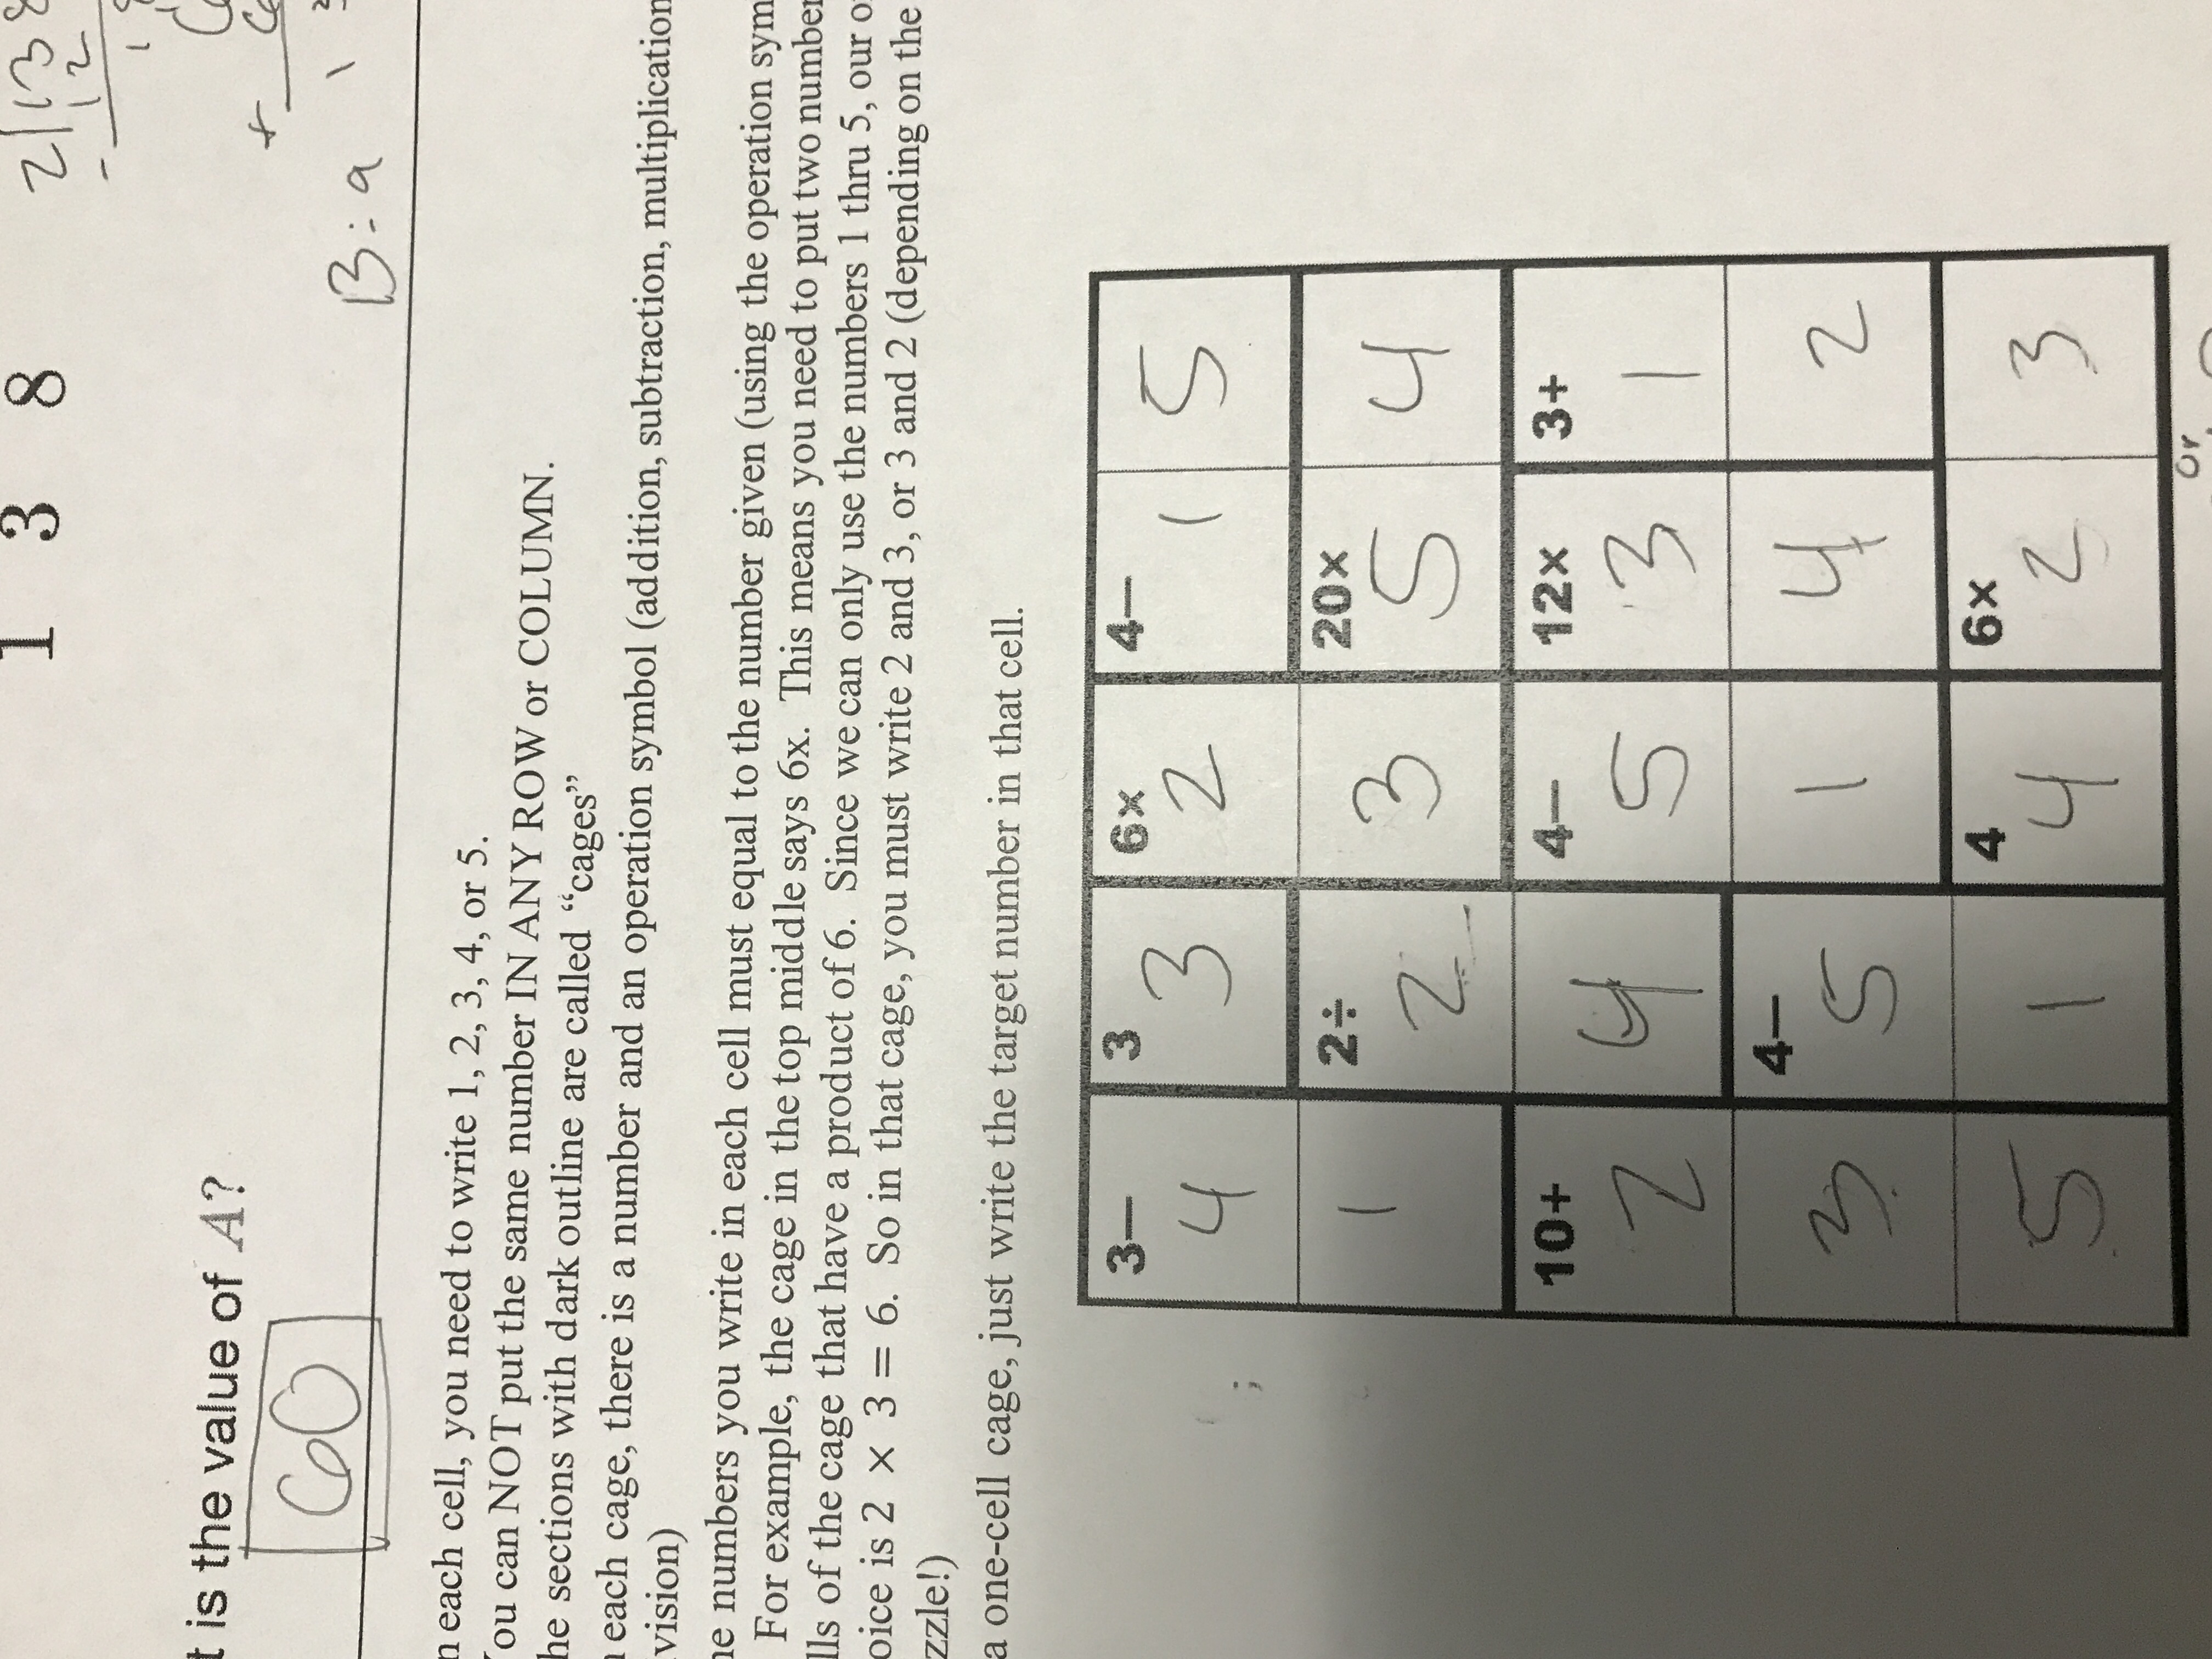 1 3 8
2 138
- 12
1
+
t is the value of A?
60
B = 9 1
n each cell, you need to write 1, 2, 3, 4, or 5.
You can NOT put the same number IN ANY ROW or COLUMN.
he sections with dark outline are called “cages”
n each cage, there is a number and an operation symbol (addition, subtraction, multiplication
vision)
he numbers you write in each cell must equal to the number given (using the operation sym
For example, the cage in the top middle says 6x. This means you need to put two number
lls of the cage that have a product of 6. Since we can only use the numbers 1 thru 5, our o
oice is 2 × 3 = 6. So in that cage, you must write 2 and 3, or 3 and 2 (depending on the
zzle!)
a one-cell cage, just write the target number in that cell.
3− 3 6× 4−
4 3 2 1 5
2÷ 20×
1 2 3 5 4
10+ 4− 12× 3+
2 4 5 3 1
4−
3 5 1 4 2
4 6×
5 1 4 2 3
or